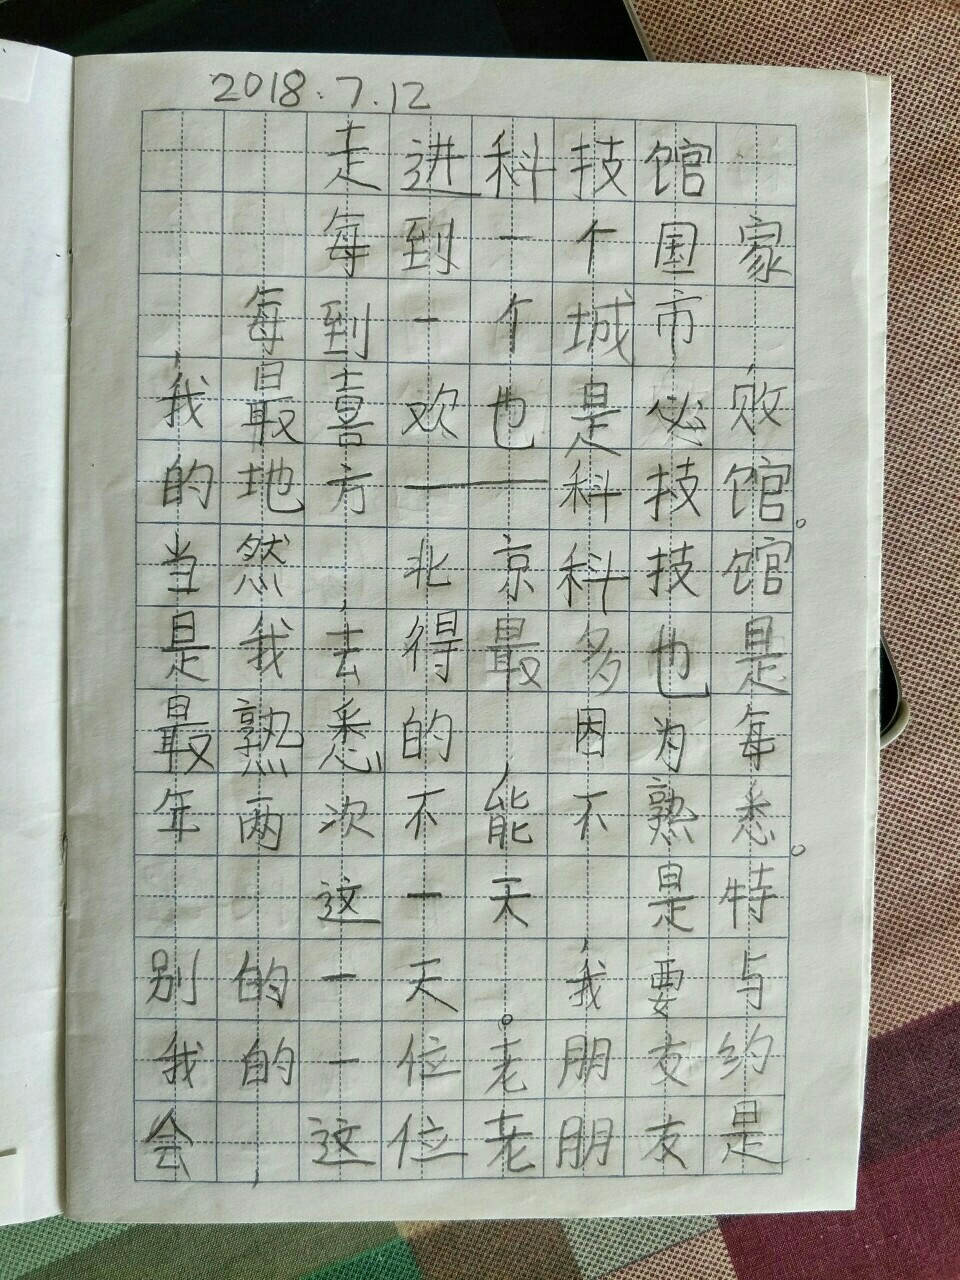 2018.7.12
走进科技馆
每到一个国家
每到一个城市,
我最喜欢也是必败
的地方——科技馆。
当然,北京科技馆
是我去得最多也是
最熟悉的,因为每
年两次不能不熟悉。
这一天,是特
别的一天。我要与
我的一位老朋友约
会,这位老朋友是